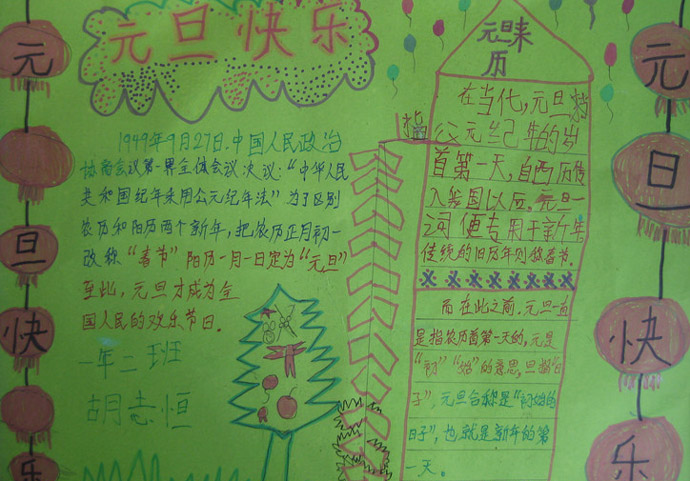 元
旦
快
乐
元旦快乐
1949年9月27日.中国人民政治
协商会议第一界全体会议决议:“中华人民
共和国纪年采用公元纪年法”为了区别
农历和阳历两个新年,把农历正月初一
改称“春节”阳历一月一日定为“元旦”
至此,元旦才成为全
国人民的欢乐节日。
一年二班
胡志恒
元旦来
历
在当代,元旦指
公元纪年的岁
首第一天,自西历传
入我国以后,元旦一
词便专用于新年
传统的旧历年则称春节。
而在此之前,元旦一直
是指农历首第一天的,元是
“初”“始”的意思,旦指“日
子”,元旦合称是“初始的
日子”,也就是新年的第
一天。
元
旦
快
乐